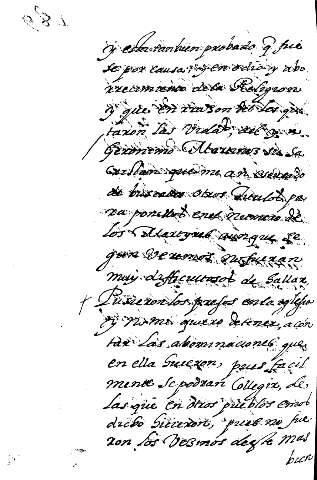 189
y esta tambien probado q̃ fue
se por causa y en odio y abo
rrecimiento de la Religion
y que en razon de los qui
taron las vidas
Geronimo
que ni an
de otros titulos pa
ra ponellos en el numero de
los Martyres aunque se
gun veremos no fueran
muy dificultosos de hallar.
Pusieron los presos en la yglesia
y ni mi quiero detener, a con
tar las abominaciones que
en ella hicieron, pues facil
mente se podran Collegir, de
las que en otros pueblos emos
dicho hicieron, pues no fue
ron los Vezinos de este mas
bien